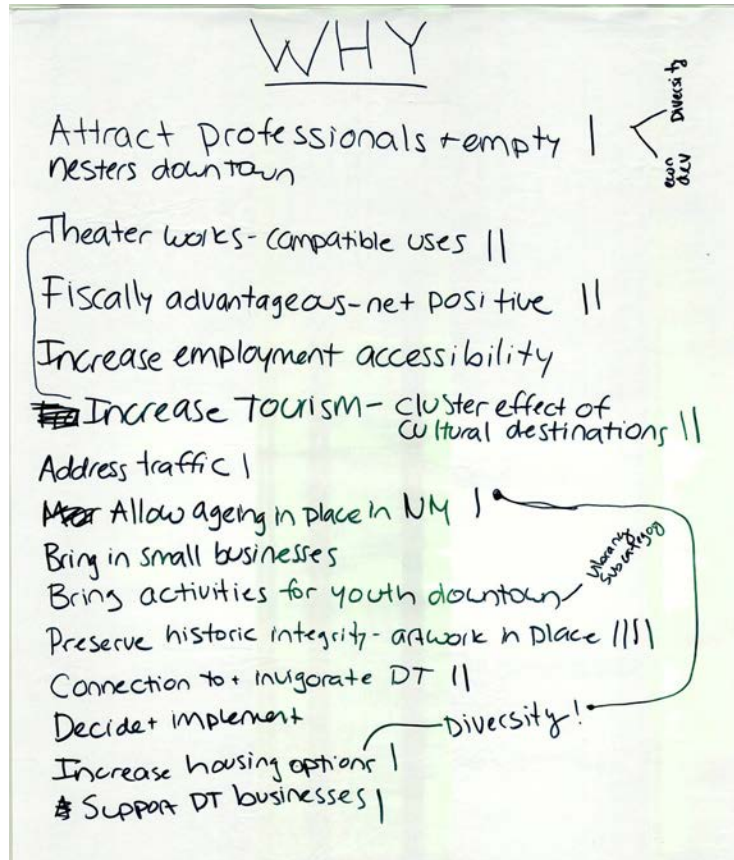 WHY
Attract professionals + empty |
nesters downtown
Diversity
econ
dev
Theater works - compatible uses ||
Fiscally advantageous - net positive ||
Increase employment accessibility
Increase Tourism - cluster effect of
cultural destinations ||
Address traffic |
Allow ageing in place in NM |
Bring in small businesses
Bring activities for youth downtown
Vibrancy
subcategory
Preserve historic integrity - artwork in place ||||
Connection to + invigorate DT ||
Decide + implement
Diversity!
Increase housing options |
Support DT businesses |